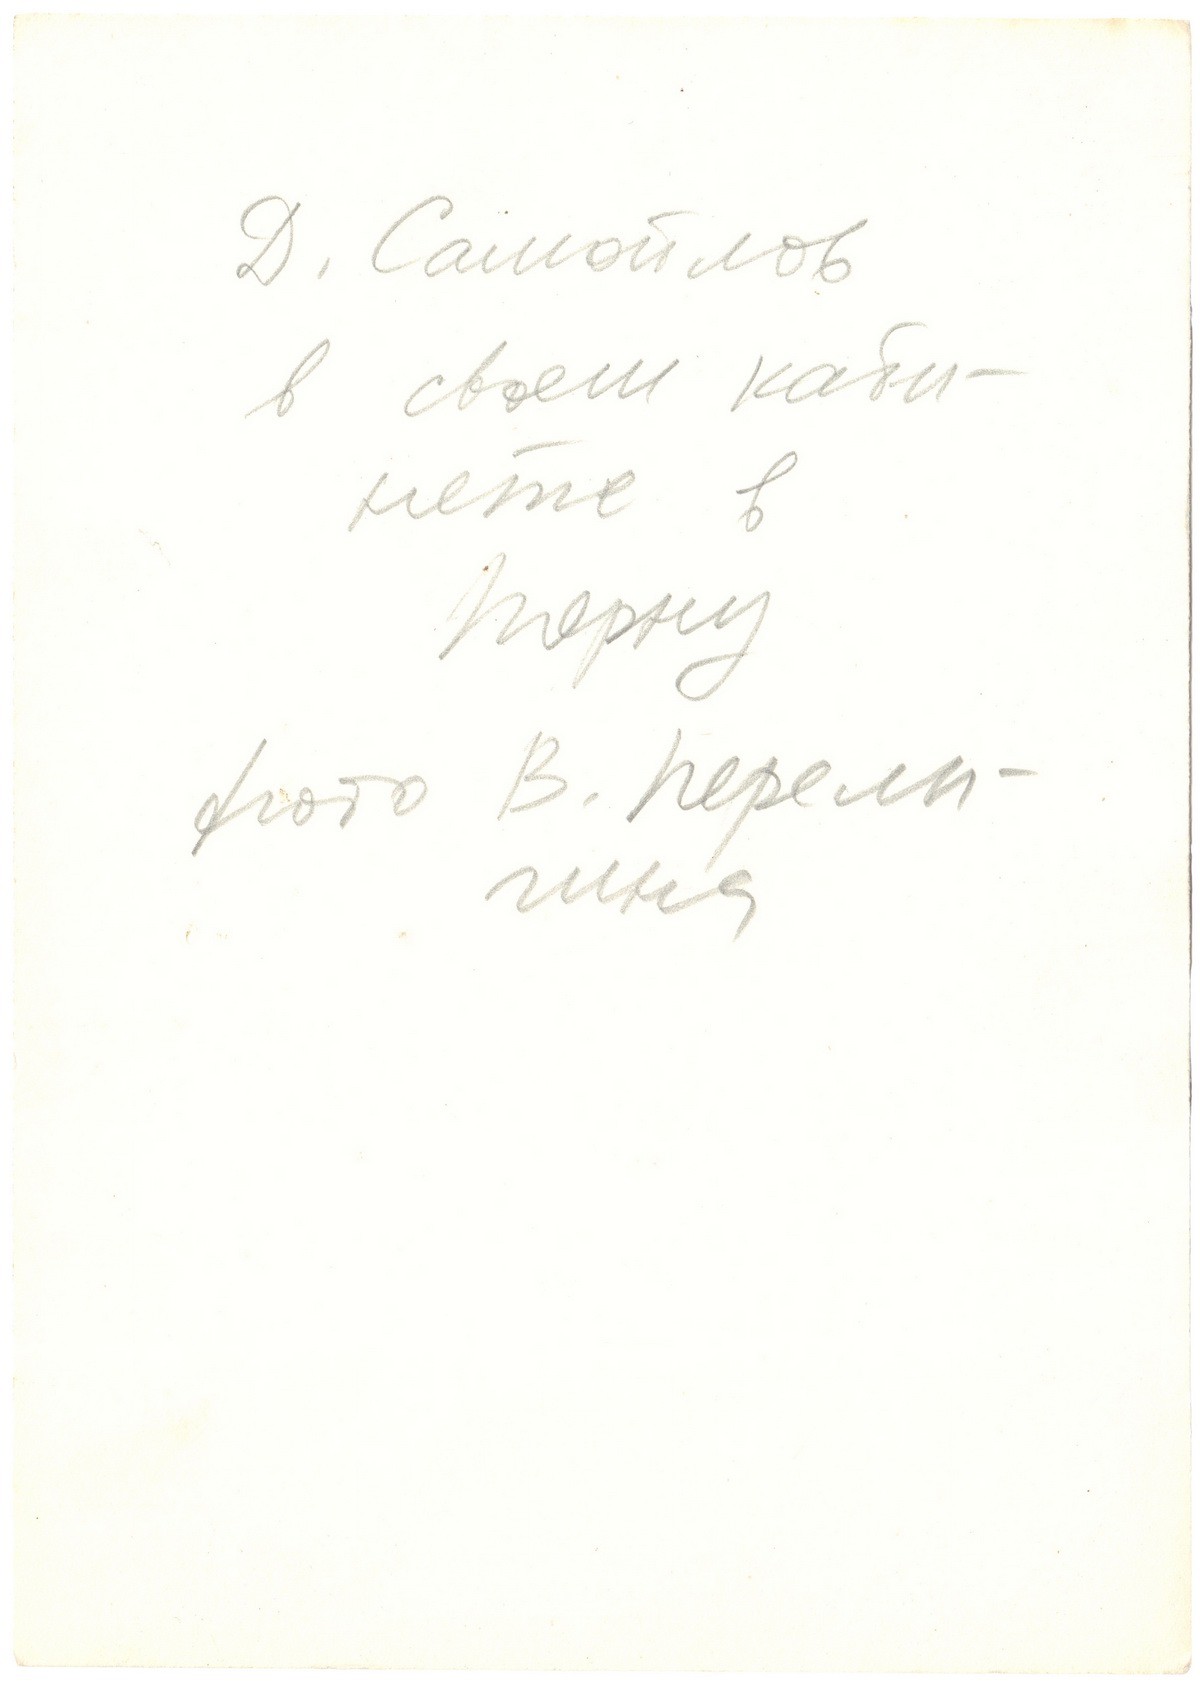 Д. Самойлов
в своем каби-
нете в
Пярну
фото В. Перелы-
гина